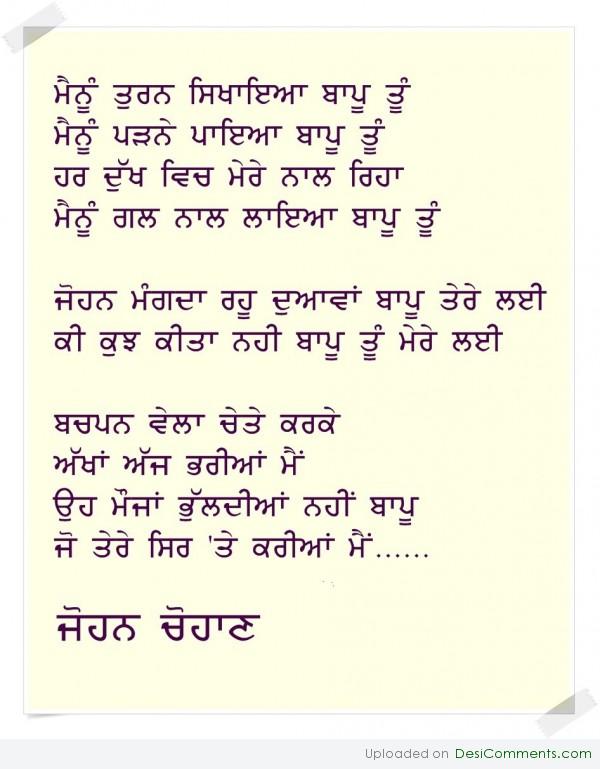 ਮੈਨੂੰ ਤੁਰਨ ਸਿਖਾਇਆ ਬਾਪੂ ਤੂੰ
ਮੈਨੂੰ ਪੜਨੇ ਪਾਇਆ ਬਾਪੂ ਤੂੰ
ਹਰ ਦੁੱਖ ਵਿਚ ਮੇਰੇ ਨਾਲ ਰਿਹਾ
ਮੈਨੂੰ ਗਲ ਨਾਲ ਲਾਇਆ ਬਾਪੂ ਤੂੰ
ਜੋਹਨ ਮੰਗਦਾ ਰਹੂ ਦੁਆਵਾਂ ਬਾਪੂ ਤੇਰੇ ਲਈ
ਕੀ ਕੁਝ ਕੀਤਾ ਨਹੀ ਬਾਪੂ ਤੂੰ ਮੇਰੇ ਲਈ
ਬਚਪਨ ਵੇਲਾ ਚੇਤੇ ਕਰਕੇ
ਅੱਖਾਂ ਅੱਜ ਭਰੀਆਂ ਮੈਂ
ਉਹ ਮੌਜਾਂ ਭੁੱਲਦੀਆਂ ਨਹੀਂ ਬਾਪੂ
ਜੋ ਤੇਰੇ ਸਿਰ 'ਤੇ ਕਰੀਆਂ ਮੈਂ......
ਜੋਹਨ ਚੋਹਾਣ
Uploaded on DesiComments.com